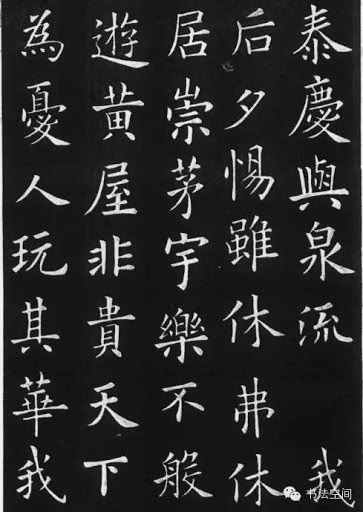 泰慶與泉流 我
后夕惕雖休弗休
居崇茅宇樂不般
遊黄屋非貴天下
為憂人玩其華我
书法空间